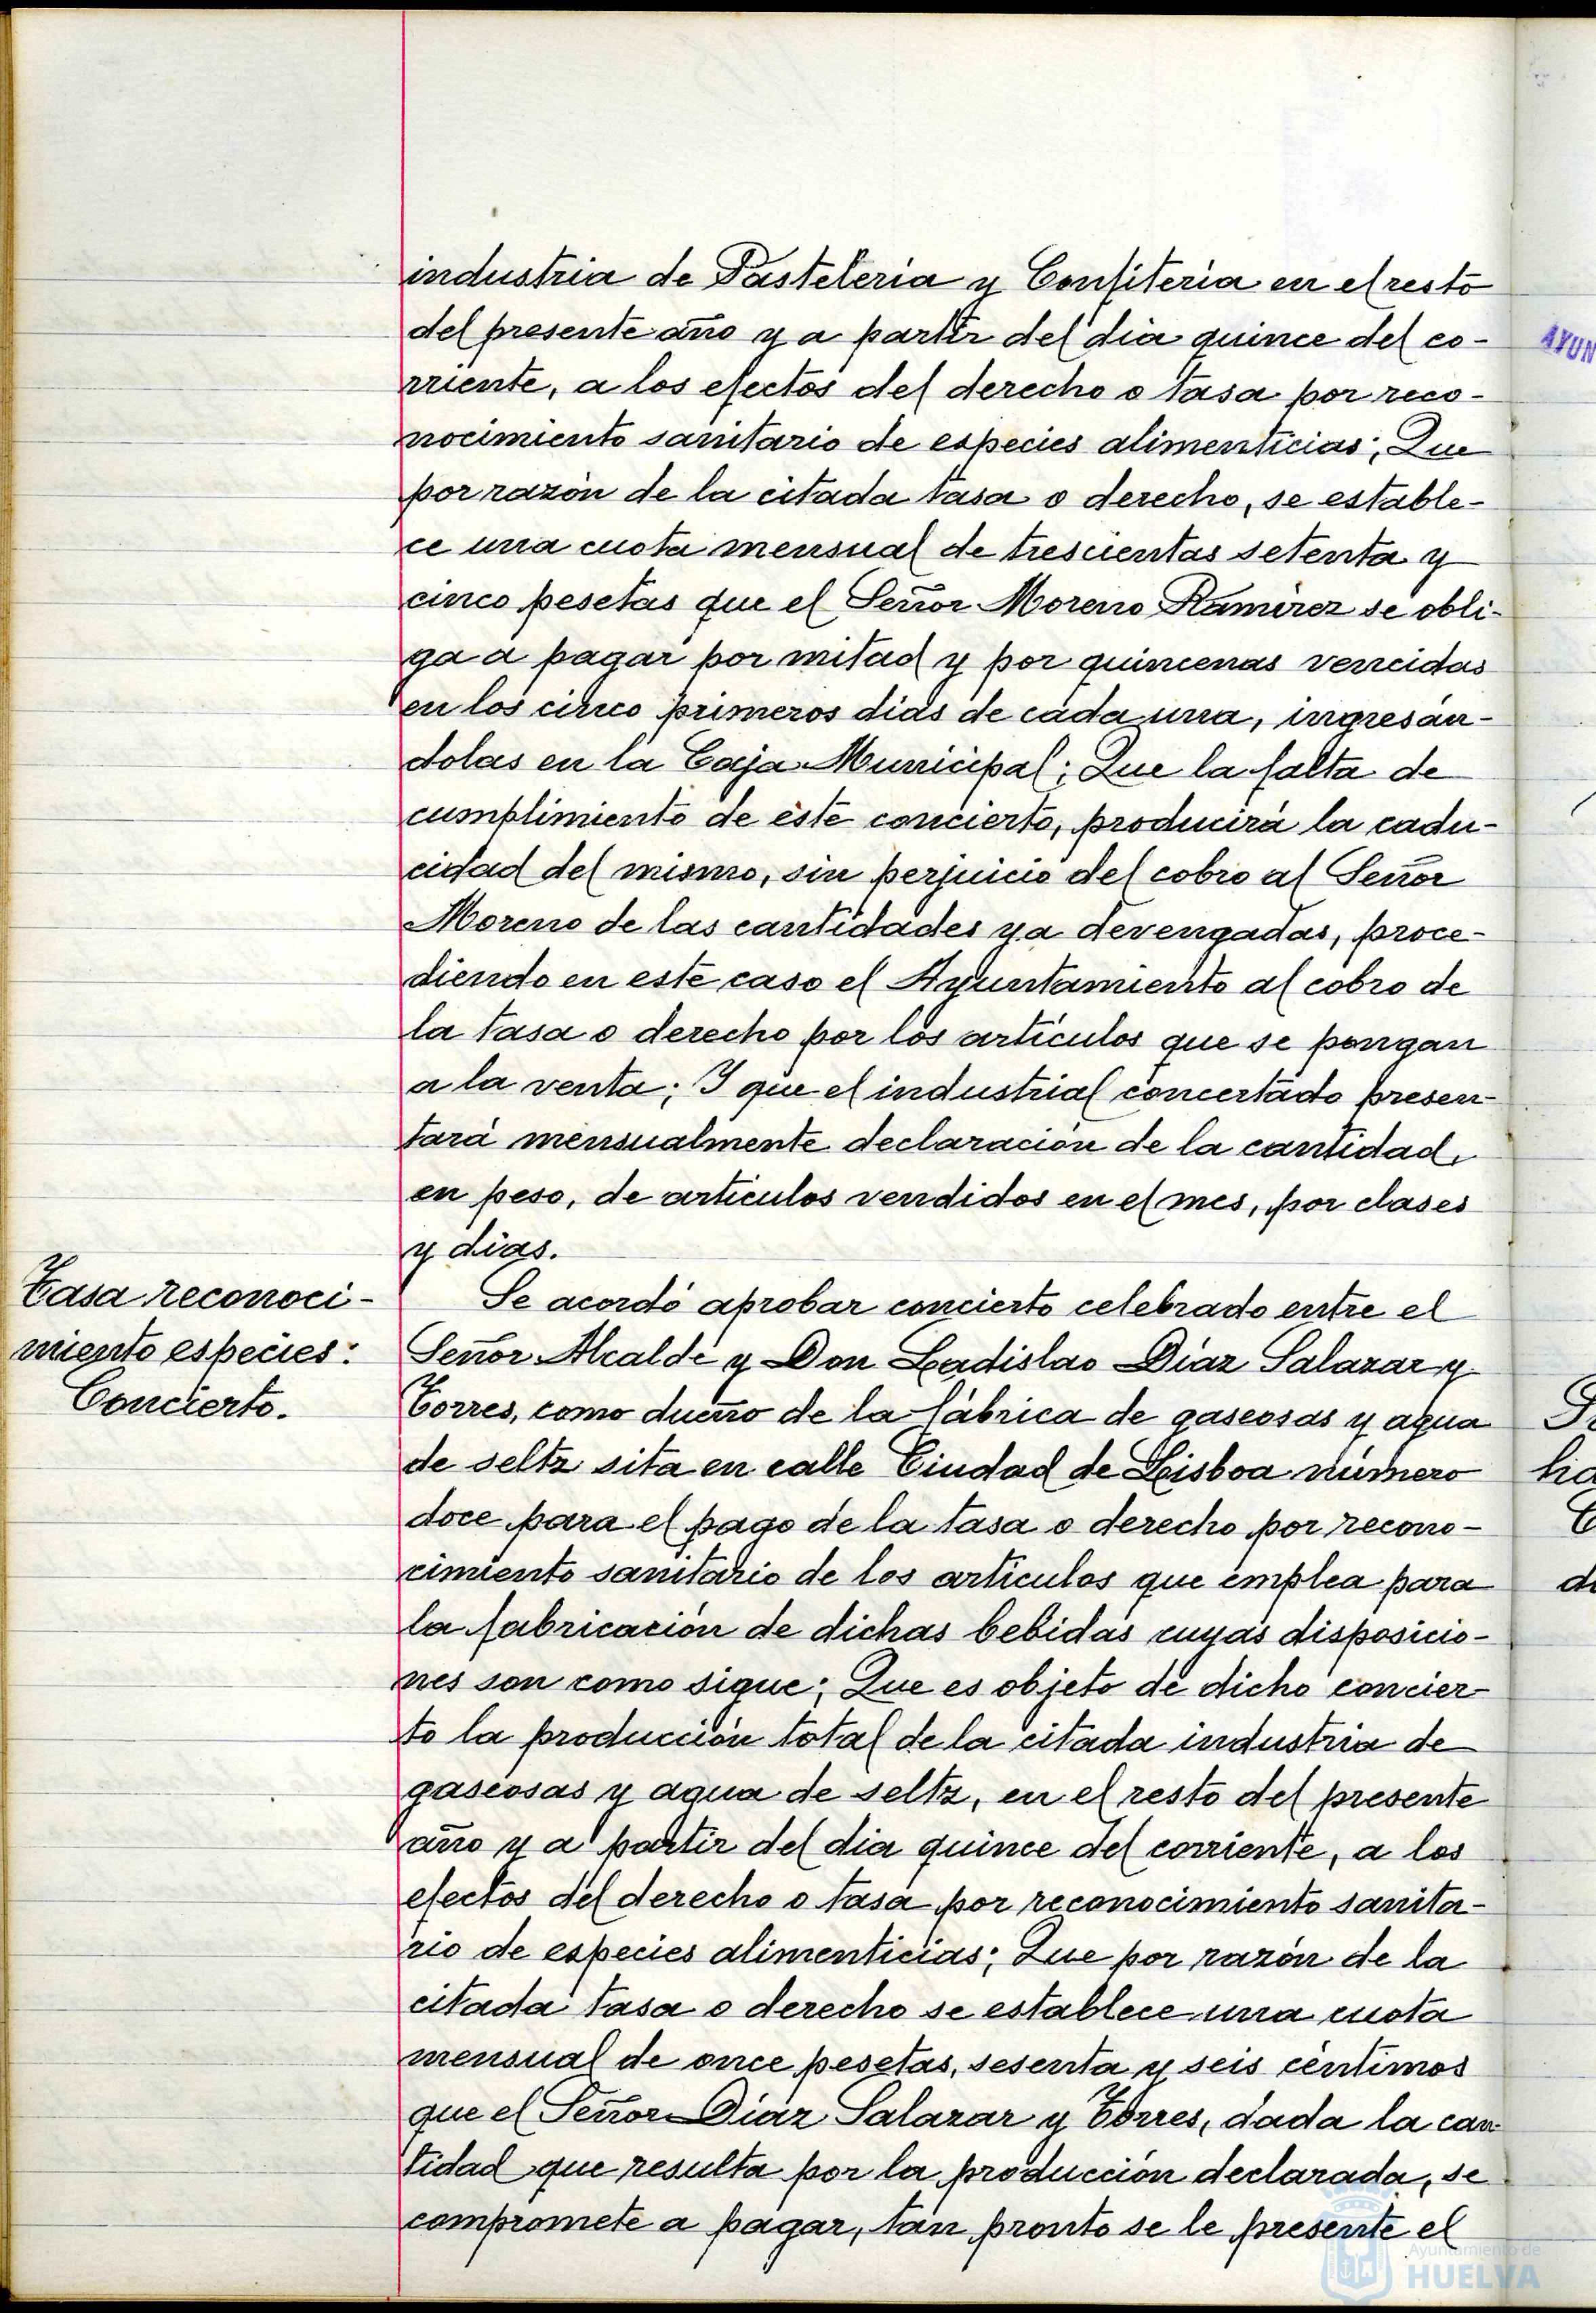 industria de Pastelería y Confitería en el resto
del presente año y a partir del día quince del co-
rriente, a los efectos del derecho o tasa por reco-
nocimiento sanitario de especies alimenticias; Que
por razón de la citada tasa o derecho, se estable-
ce una cuota mensual de trescientas setenta y
cinco pesetas que el Señor Moreno Ramírez se obli-
ga a pagar por mitad y por quincenas vencidas
en los cinco primeros días de cada una, ingresán-
dolas en la Caja Municipal; Que la falta de
cumplimiento de éste concierto, producirá la cadu-
cidad del mismo, sin perjuicio del cobro al Señor
Moreno de las cantidades ya devengadas, proce-
diendo en este caso el Ayuntamiento al cobro de
la tasa o derecho por los artículos que se pongan
a la venta; Y que el industrial concertado presen-
tará mensualmente declaración de la cantidad,
en peso, de artículos vendidos en el mes, por clases
y días.
Tasa reconoci-
miento especies.
Concierto.
Se acordó aprobar concierto celebrado entre el
Señor Alcalde y Don Ladislao Díaz Salazar y
Torres, como dueño de la fábrica de gaseosas y agua
de seltz sita en calle Ciudad de Lisboa número
doce para el pago de la tasa o derecho por recono-
cimiento sanitario de los artículos que emplea para
la fabricación de dichas bebidas cuyas disposicio-
nes son como sigue; Que es objeto de dicho concier-
to la producción total de la citada industria de
gaseosas y agua de seltz, en el resto del presente
año y a partir del día quince del corriente, a los
efectos del derecho o tasa por reconocimiento sanita-
rio de especies alimenticias; Que por razón de la
citada tasa o derecho se establece una cuota
mensual de once pesetas, sesenta y seis céntimos
que el Señor Díaz Salazar y Torres, dada la can-
tidad que resulta por la producción declarada, se
compromete a pagar, tan pronto se le presente el
AYUN
ha
Ayuntamiento de
HUELVA